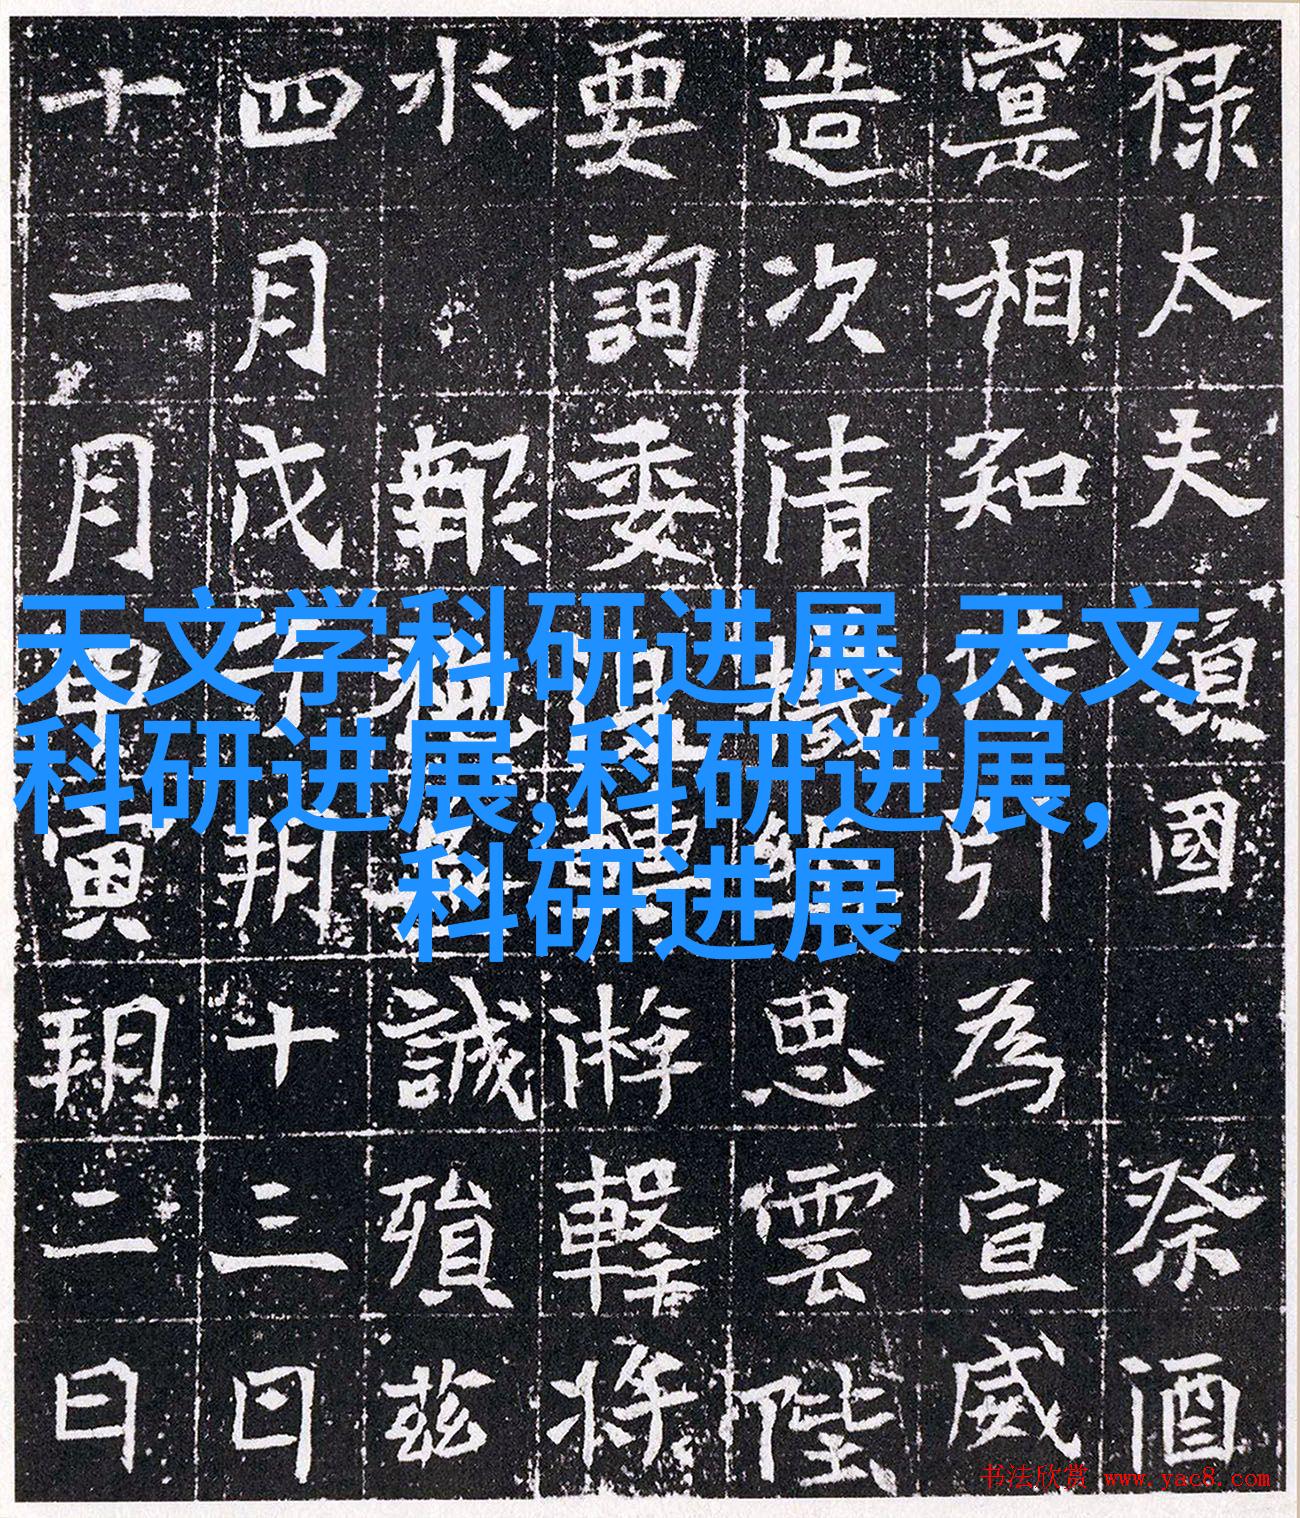 祿太夫領國祭酒
寔相知引為宣威
造次清思雲陛
要詢委轉游擊將
水報德誠殞茲
四月戊子朔十三日
十一月甲寅朔二日
天文学科研进展,天文
科研进展,科研进展,
科研进展
书法欣赏 www.yac8.com